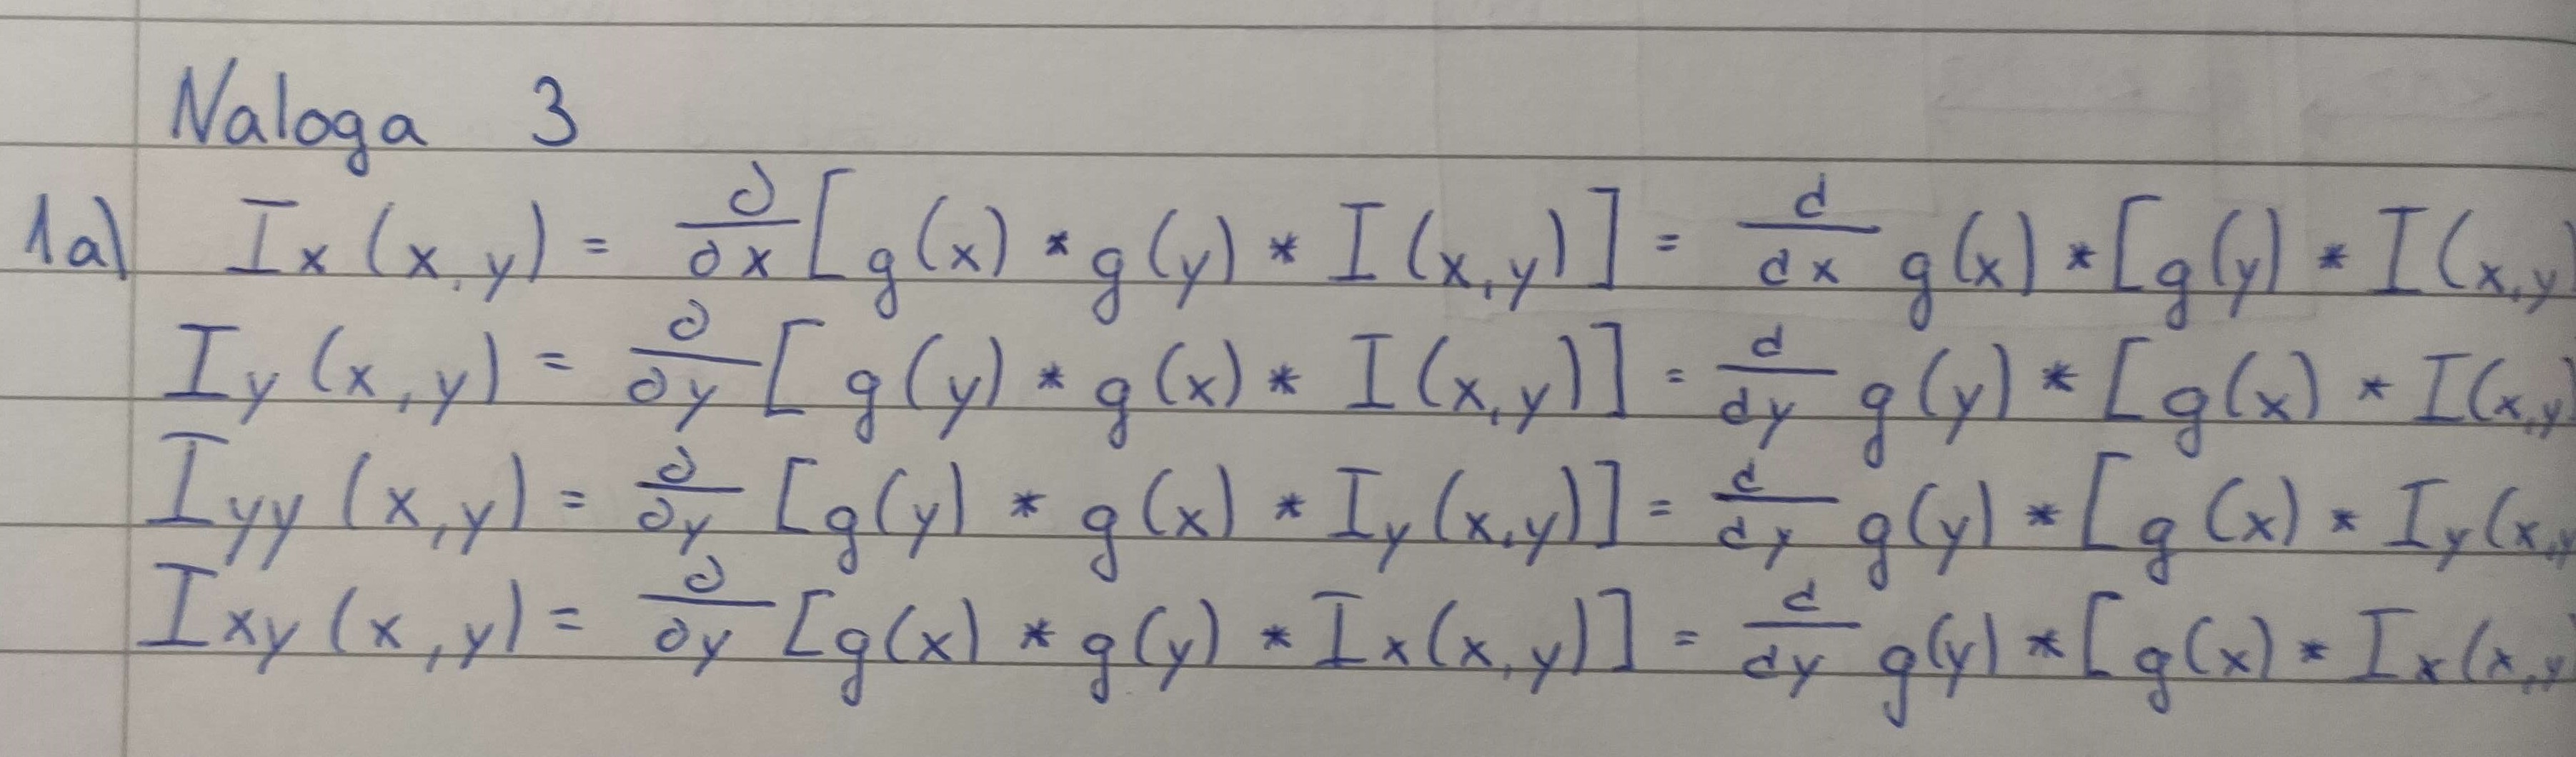 Naloga 3
1a) Ix(x,y) = ∂/∂x [g(x) * g(y) * I(x,y)] = d/dx g(x) * [g(y) * I(x,y)
Iy(x,y) = ∂/∂y [g(y) * g(x) * I(x,y)] = d/dy g(y) * [g(x) * I(x,y)
Iyy(x,y) = ∂/∂y [g(y) * g(x) * Iy(x,y)] = d/dy g(y) * [g(x) * Iy(x,y
Ixy(x,y) = ∂/∂y [g(x) * g(y) * Ix(x,y)] = d/dy g(y) * [g(x) * Ix(x,y)